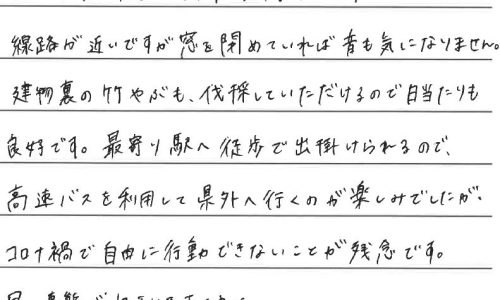 線路が近いですが窓を閉めていれば音も気になりません。
建物裏の竹やぶも、伐採していただけるので日当たりも
良好です。最寄り駅へ徒歩で出掛けられるので、
高速バスを利用して県外へ行くのが楽しみでしたが、
コロナ禍で自由に行動できないことが残念です。